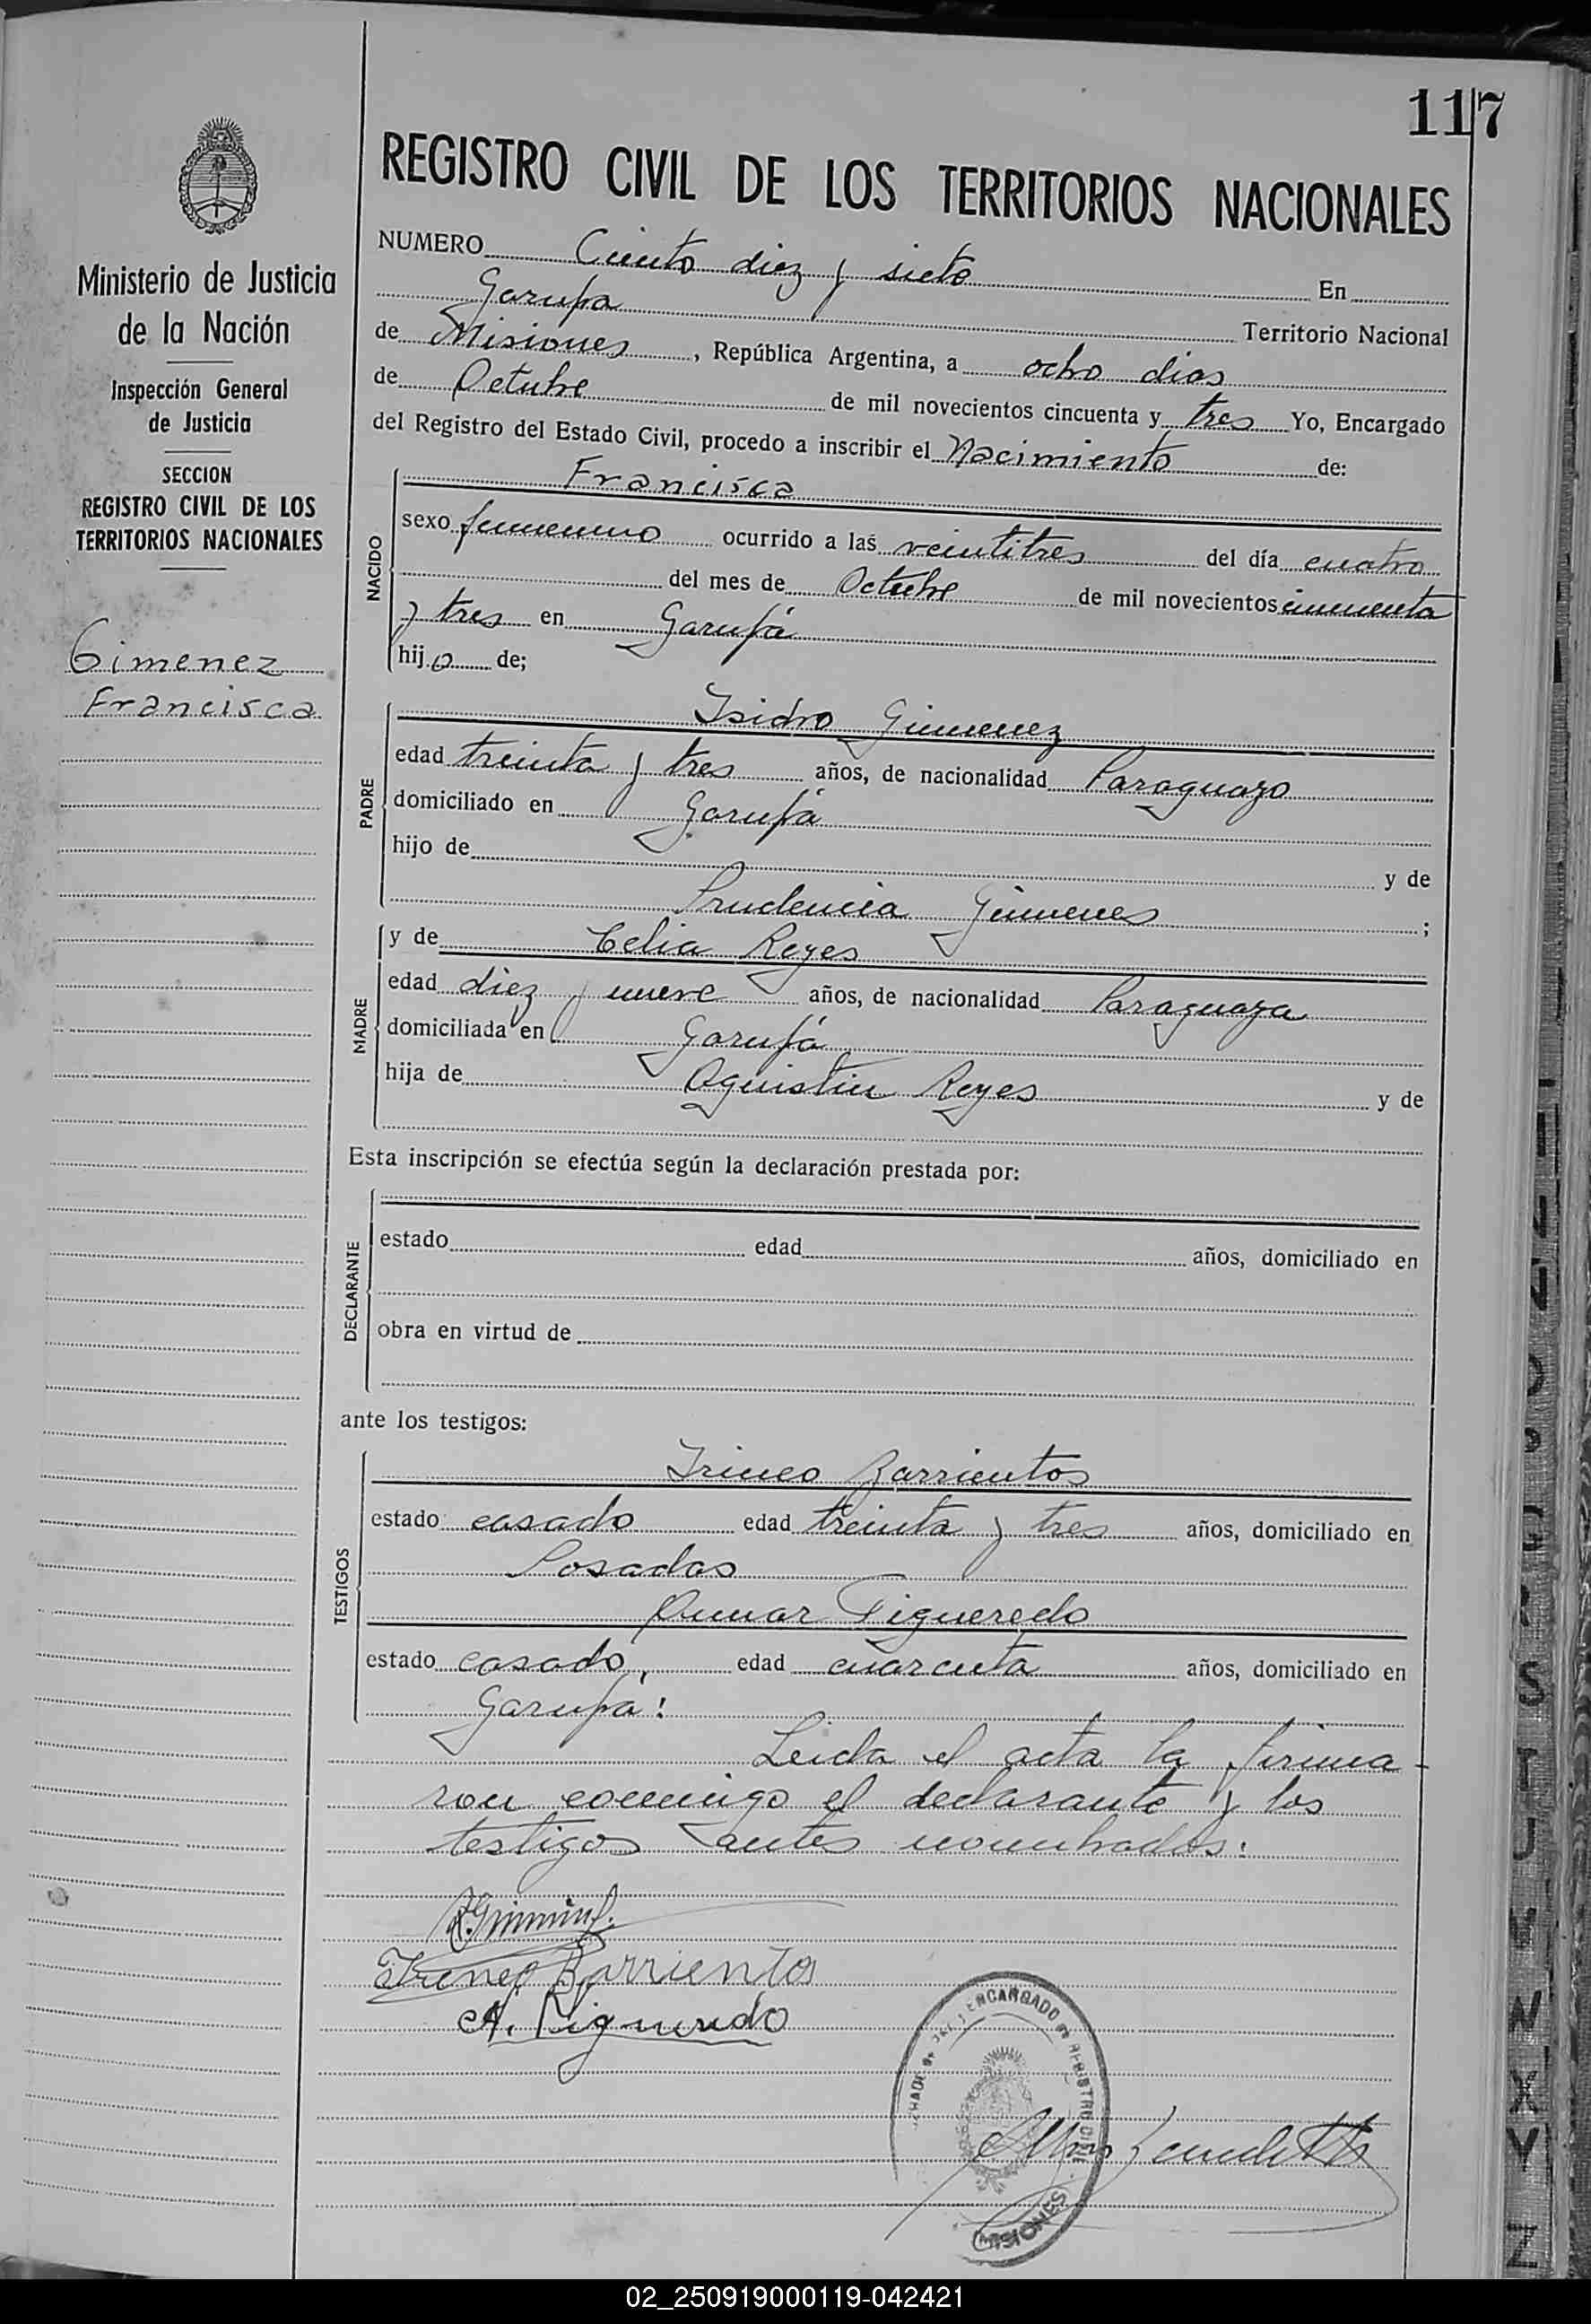 117
REGISTRO CIVIL DE LOS TERRITORIOS NACIONALES
Ministerio de Justicia
de la Nación
Inspección General
de Justicia
SECCION
REGISTRO CIVIL DE LOS
TERRITORIOS NACIONALES
Gimenez
Francisca
NUMERO Ciento diez y siete En
Garupa Territorio Nacional
de Misiones, República Argentina, a ocho dias
de Octubre de mil novecientos cincuenta y tres Yo, Encargado
del Registro del Estado Civil, procedo a inscribir el Nacimiento de:
NACIDO
Francisca
sexo femenino ocurrido a las veintitres del día cuatro
del mes de Octubre de mil novecientos cincuenta
y tres en Garupá
hija de;
PADRE
Isidro Gimenez
edad treinta y tres años, de nacionalidad Paraguayo
domiciliado en Garupá
hijo de y de
Prudencia Gimenes;
MADRE
y de Celia Reyes
edad diez y nueve años, de nacionalidad Paraguaya
domiciliada en Garupá
hija de Aguistin Reyes y de
Esta inscripción se efectúa según la declaración prestada por:
DECLARANTE
estado edad años, domiciliado en
obra en virtud de
ante los testigos:
TESTIGOS
Irineo Barrientos
estado casado edad treinta y tres años, domiciliado en
Posadas
Figueredo
estado casado, edad cuarenta años, domiciliado en
Garupá:
Leida el acta la firma-
ron conmigo el declarante y los
testigos antes nombrados:
Ireneo Barrientos
A. Figueredo
ENCARGADO REGISTRO CIVIL
MISIONES
S
T
U
W
X
Y
Z
02_250919000119-042421